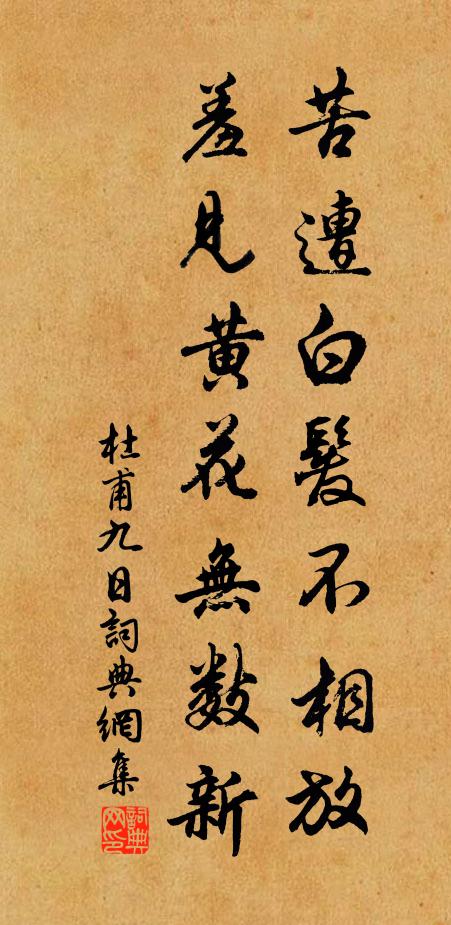 苦遭白髮不相放
羞見黃花無數新
杜甫九日詞典網集
詞典网印